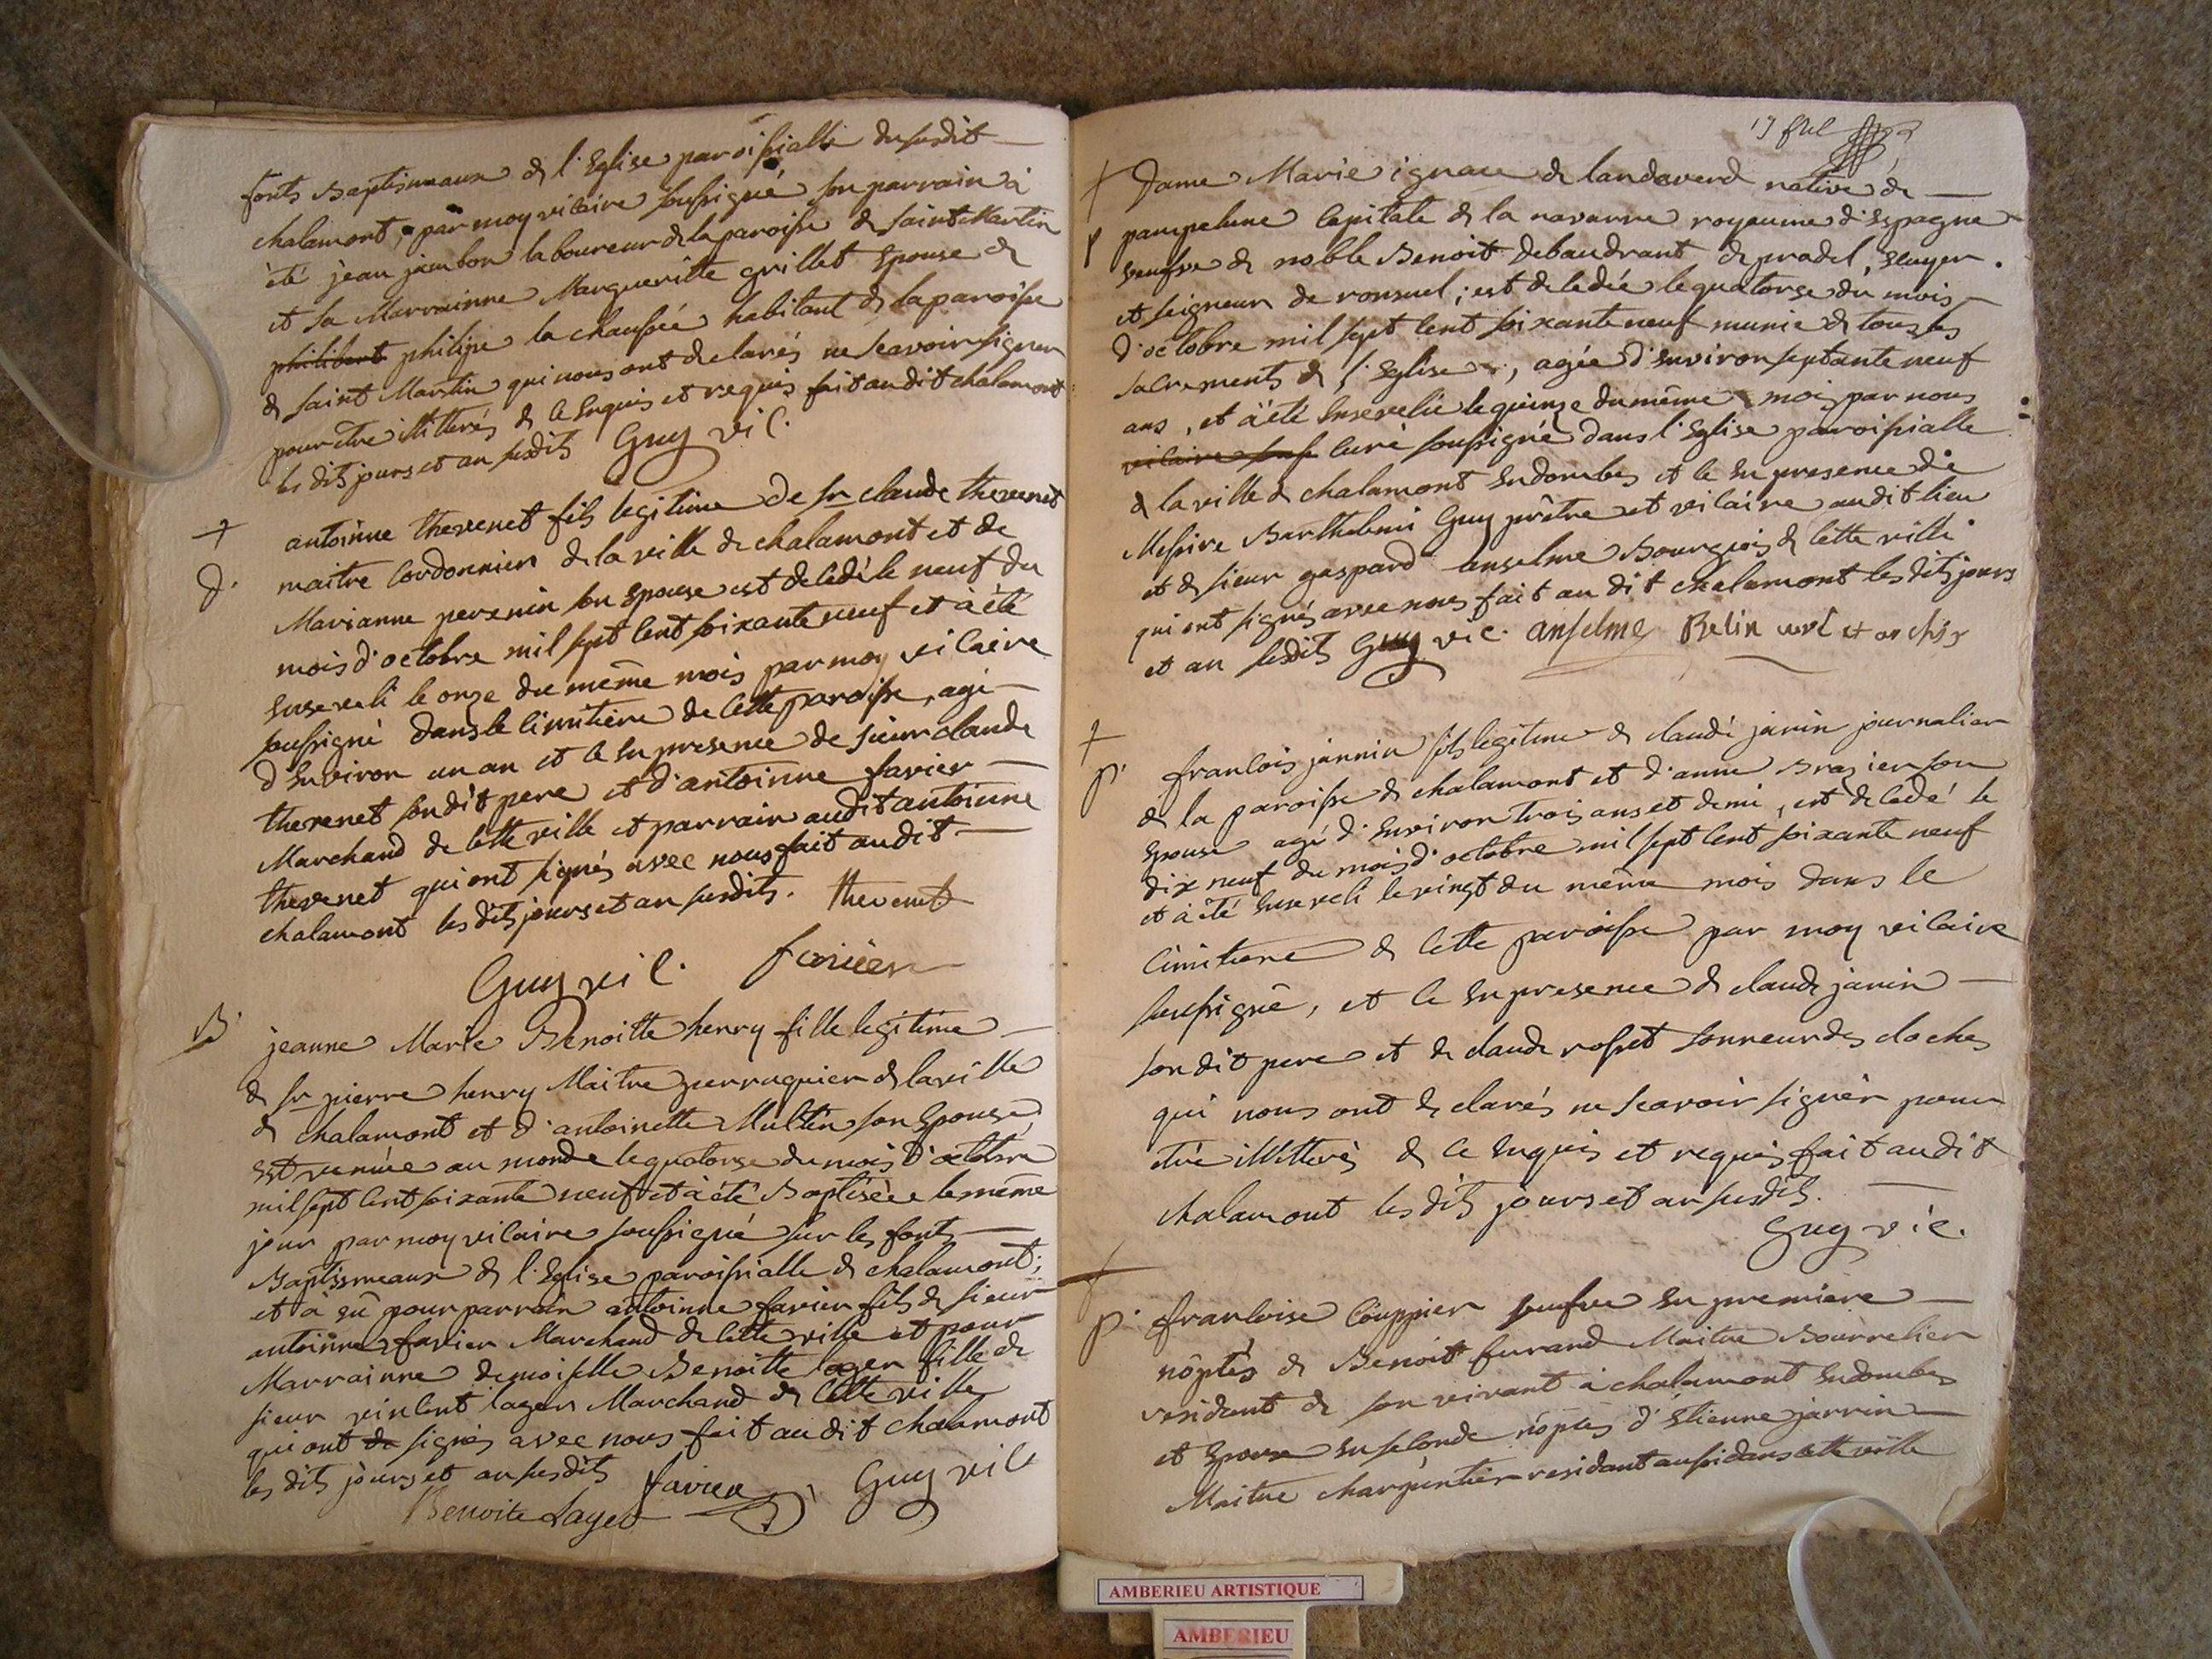 fonts Baptismaux de l'Eglise paroissialle dusudit
chalamont, par moy vicaire soussigné son parrain à
été jean jambon laboureur de la paroisse de saint Martin
et sa Marrainne Margueritte grillet Epouse de
philibert philipe la chaussée habitant de la paroisse
de saint Martin qui nous ont declarés ne scavoir signer
pour etre illitterés de ce Enquis et requis fait au dit chalamont
les dits jours et an susdits Guy vic.
+ antoinne thevenet fils legitime de sr claude thevenet
D. maitre Cordonnier de la ville de chalamont et de
Marianne perenin son Epouse est decedé le neuf du
mois d'octobre mil sept cent soixante neuf et à été
Enseveli le onze du même mois par moy vicaire
soussigné dans le cimitiere de cette paroisse, agé
d'Environ un an et ce En presence de sieur claude
thevenet son dit pere et d'antoinne favier
Marchand de cette ville et parrain audit antoinne
thevenet qui ont signés avec nous fait au dit
chalamont les dits jours et an susdits. thevenet
Guy vic. favier
B. jeanne Marie Benoitte henry fille legitime
de sr pierre henry Maitre perruquier de la ville
de chalamont et d'antoinette Multin son Epouse
Est venüe au monde le quatorse du mois d'octobre
mil sept cent soixante neuf et à été Baptisée le même
jour par moy vicaire soussigné sur les fonts
Baptismeaux de l'Eglise paroissialle de chalamont;
et à Eû pour parrain antoinne favier fils de sieur
antoinne favier Marchand de cette ville et pour
Marrainne demoiselle Benoitte lager fille de
sieur vincent lager Marchand de cette ville
qui ont de signés avec nous fait au dit chalamont
les dits jours et an susdits favier Guy vic
Benoite Layer
+ Dame Marie ignace de landaverd native de
pampelune Capitale de la navarre royaume d'Espagne
veufve de noble Benoit debaudrant de pradel, Ecuyer
et seigneur de ronsuel; est decedée le quatorse du mois
d'octobre mil sept cent soixante neuf munie de tous les
sacrements de l'Eglise, agée d'Environ septante neuf
ans, et à été Ensevelie le quinze du même mois par nous
vicaire sous curé soussigné dans l'Eglise paroissialle
de la ville de chalamont En dombes et ce En presence de
Messire Barthelemi Guy prêtre et vicaire audit lieu
et de sieur gaspard anselme Bourgeois de cette ville
qui ont signés avec nous fait au dit chalamont les dits jours
et an susdits Guy vic. anselme Belin curé et
+ francois jannin fils legitime de claude janin journalier
p. de la paroisse de chalamont et d'anne Brazier son
Epouse agé d'Environ trois ans et demi, est decedé le
dix neuf du mois d'octobre mil sept cent soixante neuf
et à été Enseveli le vingt du même mois dans le
cimitiere de cette paroisse par moy vicaire
soussigné, et ce En presence de claude janin
son dit pere et de claude rosset sonneur des cloches
qui nous ont declarés ne scavoir signer pour
etre illitterés de ce Enquis et requis fait au dit
chalamont les dits jours et an susdits.
Guy vic.
+ p. francoise Couppier veufve En premiere
nôptes de Benoit furand Maitre Bourrelier
residant de son vivant à chalamont En dombes
et Epouse En seconde nôptes d'Etienne jarrin
Maitre charpentier residant aussi dans cette ville
AMBERIEU ARTISTIQUE
AMBERIEU